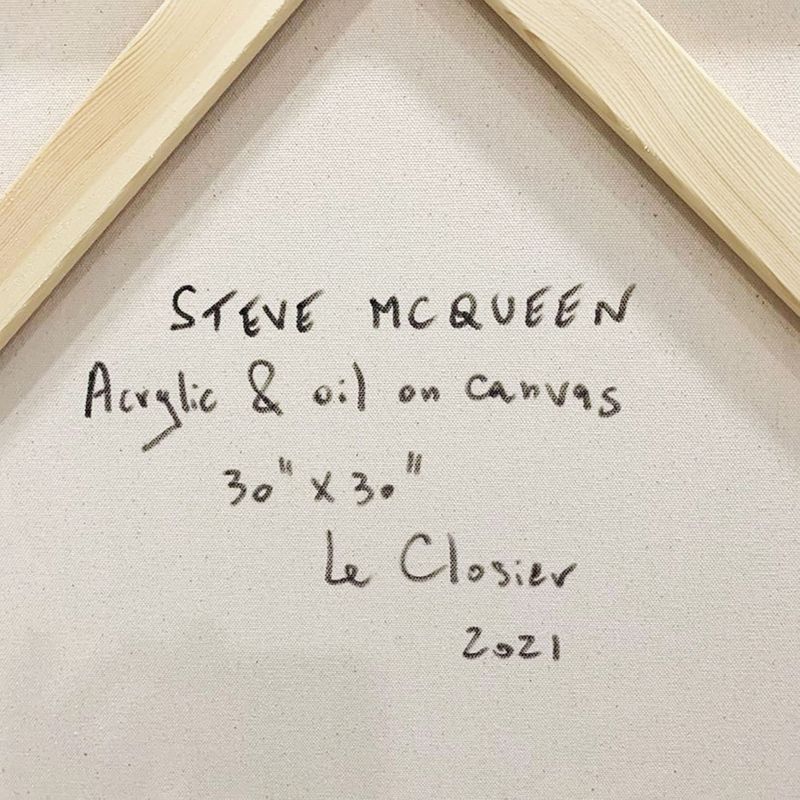 STEVE MCQUEEN
Acrylic & oil on canvas
30" x 30"
Le Closier
2021